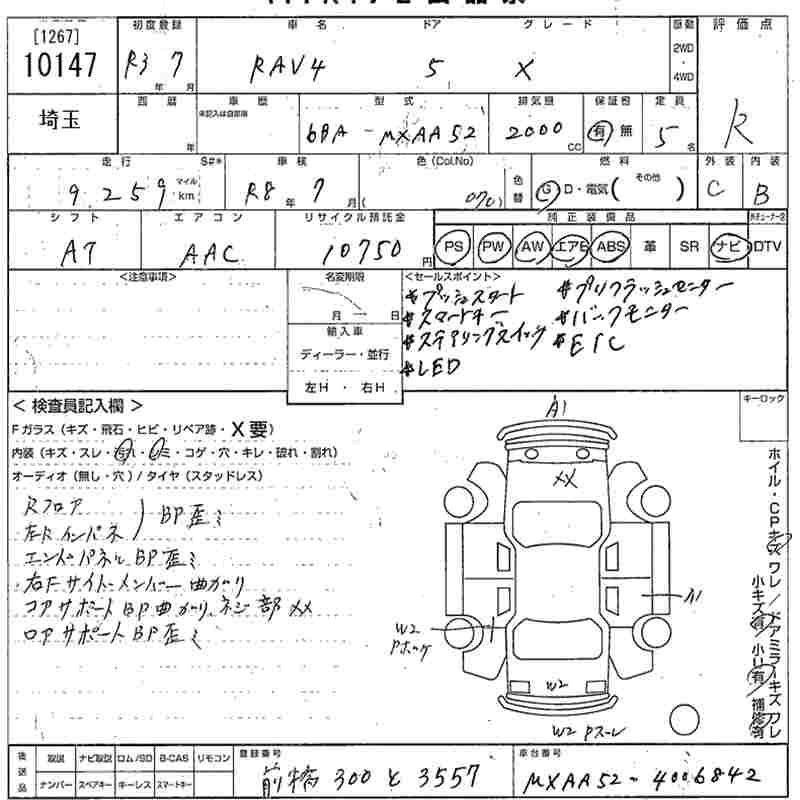 [1267]
10147
埼玉
初度登録
R3 年 7 月
車名
RAV4
ドア
5
グレード
X
駆動
2WD
・
4WD
評価点
R
西暦
年
車歴
未記入は自家用
型式
6BA - MXAA52
排気量
2000 CC
保証書
有 無
定員
5 名
走行
9,259
マイル
km
S#*
車検
R8 年 7 月
色(Col.No)
( 070)
色替
燃料
G・D・電気( その他 )
外装
C
内装
B
シフト
AT
エアコン
AAC
リサイクル預託金
10750 円
純正装備品
PS PW AW エアB ABS 革 SR ナビ DTV
<注意事項>
名変期限
月 日
輸入車
ディーラー・並行
左H ・ 右H
<セールスポイント>
#プッシュスタート #プリクラッシュセーフター
#スマートキー #バックモニター
#ステアリングスイッチ #ETC
#LED
<検査員記入欄>
Fガラス(キズ・飛石・ヒビ・リペア跡・X要)
内装(キズ・スレ・汚れ・シミ・コゲ・穴・キレ・破れ・割れ)
オーディオ(無し・穴)/タイヤ(スタッドレス)
Rフロア
左Rインパネ
BP歪ミ
エンドパネル BP歪ミ
右Fサイドメンバー 曲がり
コアサポート BP曲がり、ネジ部XX
ロアサポート BP歪ミ
キーロック
A1
XX
A1
W2
Pホック
W2
W2
ホイル・CPキズ ワレ/ドアミラーキズ ワレ
小キズ有 小凹有 補修有
後送品
取説 ナビ取説 ロム/SD B-CAS リモコン
ナンバー スペアキー キーレス スマートキー
登録番号
前橋 300 と 3557
車台番号
MXAA52-4006842